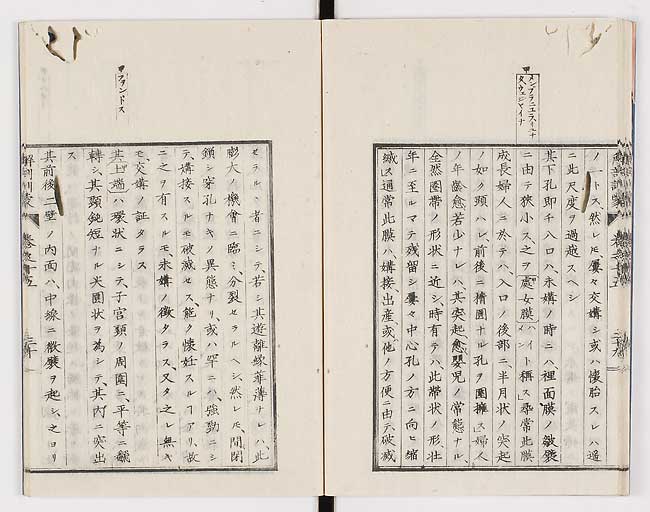 ノートス、然レモ屢々交媾シ或ハ懐胎スレハ遥
ニ此尺度ヲ過越スヘシ
其下孔即チ入口ハ、未媾ノ時ニハ裡面膜ノ皺襞
ニ由テ狭小ス、之ヲ「處女膜」ト稱ス尋常此膜
成長婦人ニ於テハ、入口ノ後部ニ、半月状ノ突起
ノ如ク現ハレ、前後ニ橢圓ナル孔ヲ圍擁ス婦人
ノ年齢愈若少ナレハ、其突起愈嬰児ノ常態ナル、
全然圏帯ノ形状ニ近シ、時有テハ此帯状ノ形、壮
年ニ至ルマテ残留シ屢々中心孔ノ方ニ向ヒ縮
緘ス通常此膜ハ、媾接出産、或ハ他ノ方便ニ由テ、破滅
メンブラニユス
セラルヽ者ニシテ、若シ其遊離縁菲薄ナレハ、此
膨大ノ機會ニ臨ミ、分裂セラルヘシ、然レモ、閒閉
鎖シ穿孔ナキノ異態ナリ、或ハ罕ニハ、強靱ニシ
テ、媾接スルモ破滅セス、能ク懐妊スルヿアリ、故
ニ之ヲ有スルモ、未媾ノ徴タラス、又タ之レ無キ
モ、交媾ノ証タラス
其上端ハ環状ニシテ、子宮頚ノ周圍ニ、平等ニ翻
轉シ、其頚鈍短ナル尖圓状ヲ為シテ、其内ニ突出
ス
其前後二壁ノ内面ハ、中線ニ皺襞ヲ起シ、之ヨリ
ファンドス
解剖訓蒙
巻之十五